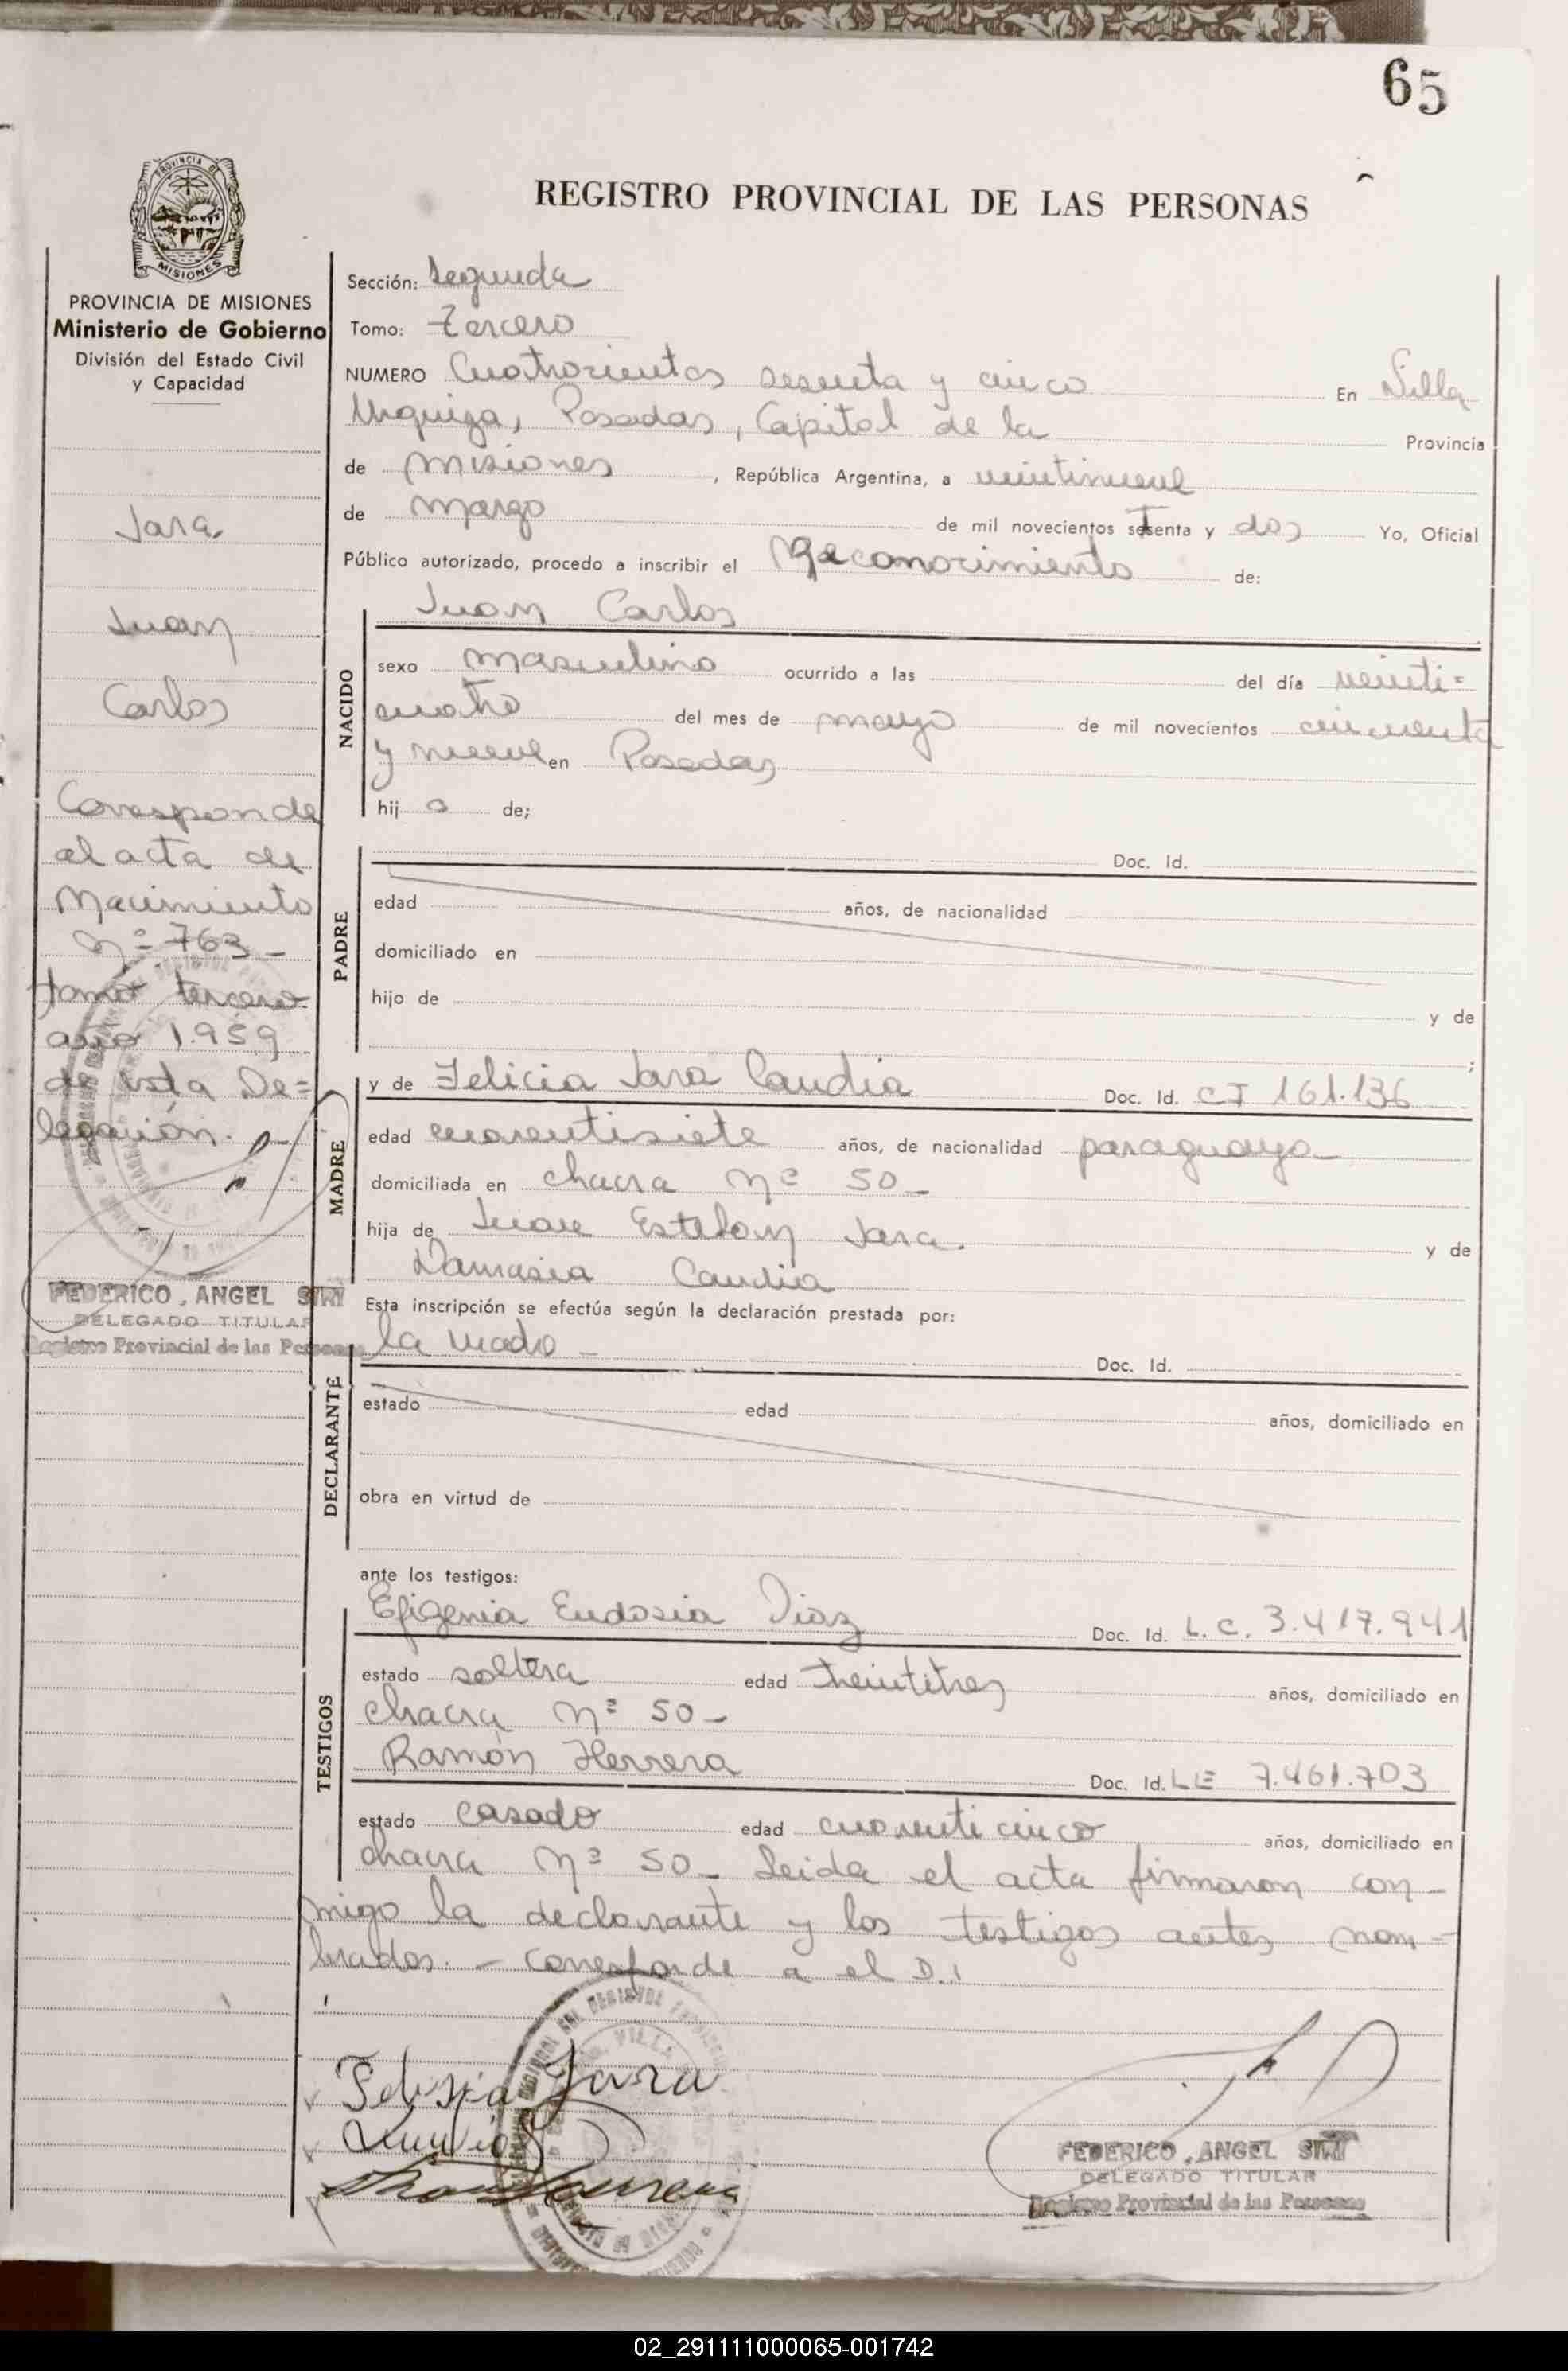 65
REGISTRO PROVINCIAL DE LAS PERSONAS
PROVINCIA DE MISIONES
Ministerio de Gobierno
División del Estado Civil
y Capacidad
Jara,
Juan
Carlos
Corresponde
al acta de
Nacimiento
Nº 763-
tomo tercero
año 1.959
de esta De=
legación.
FEDERICO, ANGEL SIRI
DELEGADO TITULAR
Registro Provincial de las Personas
Sección: Segunda
Tomo: Tercero
NUMERO Cuatrocientos sesenta y cinco En Villa
Urquiza, Posadas, Capital de la Provincia
de Misiones, República Argentina, a veintinueve
de Marzo de mil novecientos setenta y dos Yo, Oficial
Público autorizado, procedo a inscribir el Reconocimiento de:
Juan Carlos
NACIDO
sexo masculino ocurrido a las del día veinti=
cuatro del mes de mayo de mil novecientos cincuenta
y nueve en Posadas
hijo de;
PADRE
Doc. Id.
edad años, de nacionalidad
domiciliado en
hijo de y de
;
MADRE
y de Felicia Jara Candia Doc. Id. CI 161.136
edad cuarentisiete años, de nacionalidad paraguaya
domiciliada en chacra Nº 50-
hija de Juan Esteban Jara. y de
Damasia Candia
Esta inscripción se efectúa según la declaración prestada por:
la madre - Doc. Id.
DECLARANTE
estado edad años, domiciliado en
obra en virtud de
ante los testigos:
TESTIGOS
Efigenia Eudosia Diaz Doc. Id. L.C. 3.417.941
estado soltera edad treintitres años, domiciliado en
chacra Nº 50-
Ramón Herrera Doc. Id. LE 7.461.703
estado casado edad cuarenticinco años, domiciliado en
chacra Nº 50- Leida el acta firmaron con-
migo la declarante y los testigos antes nom=
brados. - Corresponde a el D.I
Jara
FEDERICO, ANGEL SIRI
DELEGADO TITULAR
Registro Provincial de las Personas
02_291111000065-001742